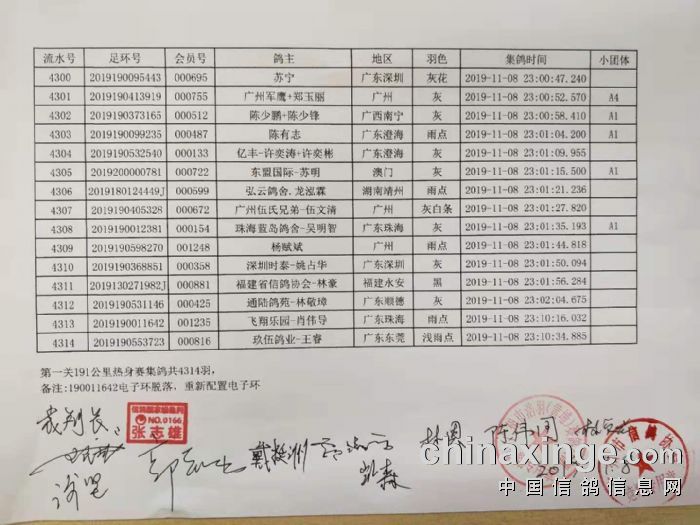 流水号 足环号 会员号 鸽主 地区 羽色 集鸽时间 小团体
4300 2019190095443 000695 苏宁 广东深圳 灰花 2019-11-08 23:00:47.240
4301 2019190413919 000755 广州军鹰+郑玉丽 广州 灰 2019-11-08 23:00:52.570 A4
4302 2019190373165 000512 陈少鹏+陈少锋 广西南宁 灰 2019-11-08 23:00:58.410 A1
4303 2019190099235 000487 陈有志 广东澄海 雨点 2019-11-08 23:01:04.200 A1
4304 2019190532540 000133 亿丰-许奕涛+许奕彬 广东澄海 灰 2019-11-08 23:01:09.955
4305 2019200000781 000722 东盟国际-苏明 澳门 灰 2019-11-08 23:01:15.500 A1
4306 2019180124449J 000599 弘云鸽舍.龙泓霖 湖南靖州 雨点 2019-11-08 23:01:21.236
4307 2019190405328 000672 广州伍氏兄弟-伍文清 广州 灰白条 2019-11-08 23:01:27.820
4308 2019190012381 000154 珠海蓝岛鸽舍-吴明智 广东珠海 灰 2019-11-08 23:01:35.193 A1
4309 2019190598270 001248 杨赋斌 广州 雨点 2019-11-08 23:01:44.818
4310 2019190368851 000358 深圳时泰-姚占华 广东深圳 灰 2019-11-08 23:01:50.094
4311 2019130271982J 000881 福建省信鸽协会-林豪 福建永安 黑 2019-11-08 23:01:56.284
4312 2019190531146 000425 通陆鸽苑-林敬璋 广东顺德 灰 2019-11-08 23:02:04.675
4313 2019190011642 001235 飞翔乐园-肖伟导 广东珠海 雨点 2019-11-08 23:10:16.032
4314 2019190553723 000816 玖伍鸽业-王睿 广东东莞 浅雨点 2019-11-08 23:10:34.885
第一关191公里热身赛集鸽共4314羽,
备注:190011642电子环脱落，重新配置电子环
裁判长:
NO.0166
张志雄
chinaxinge.com
中国信鸽信息网